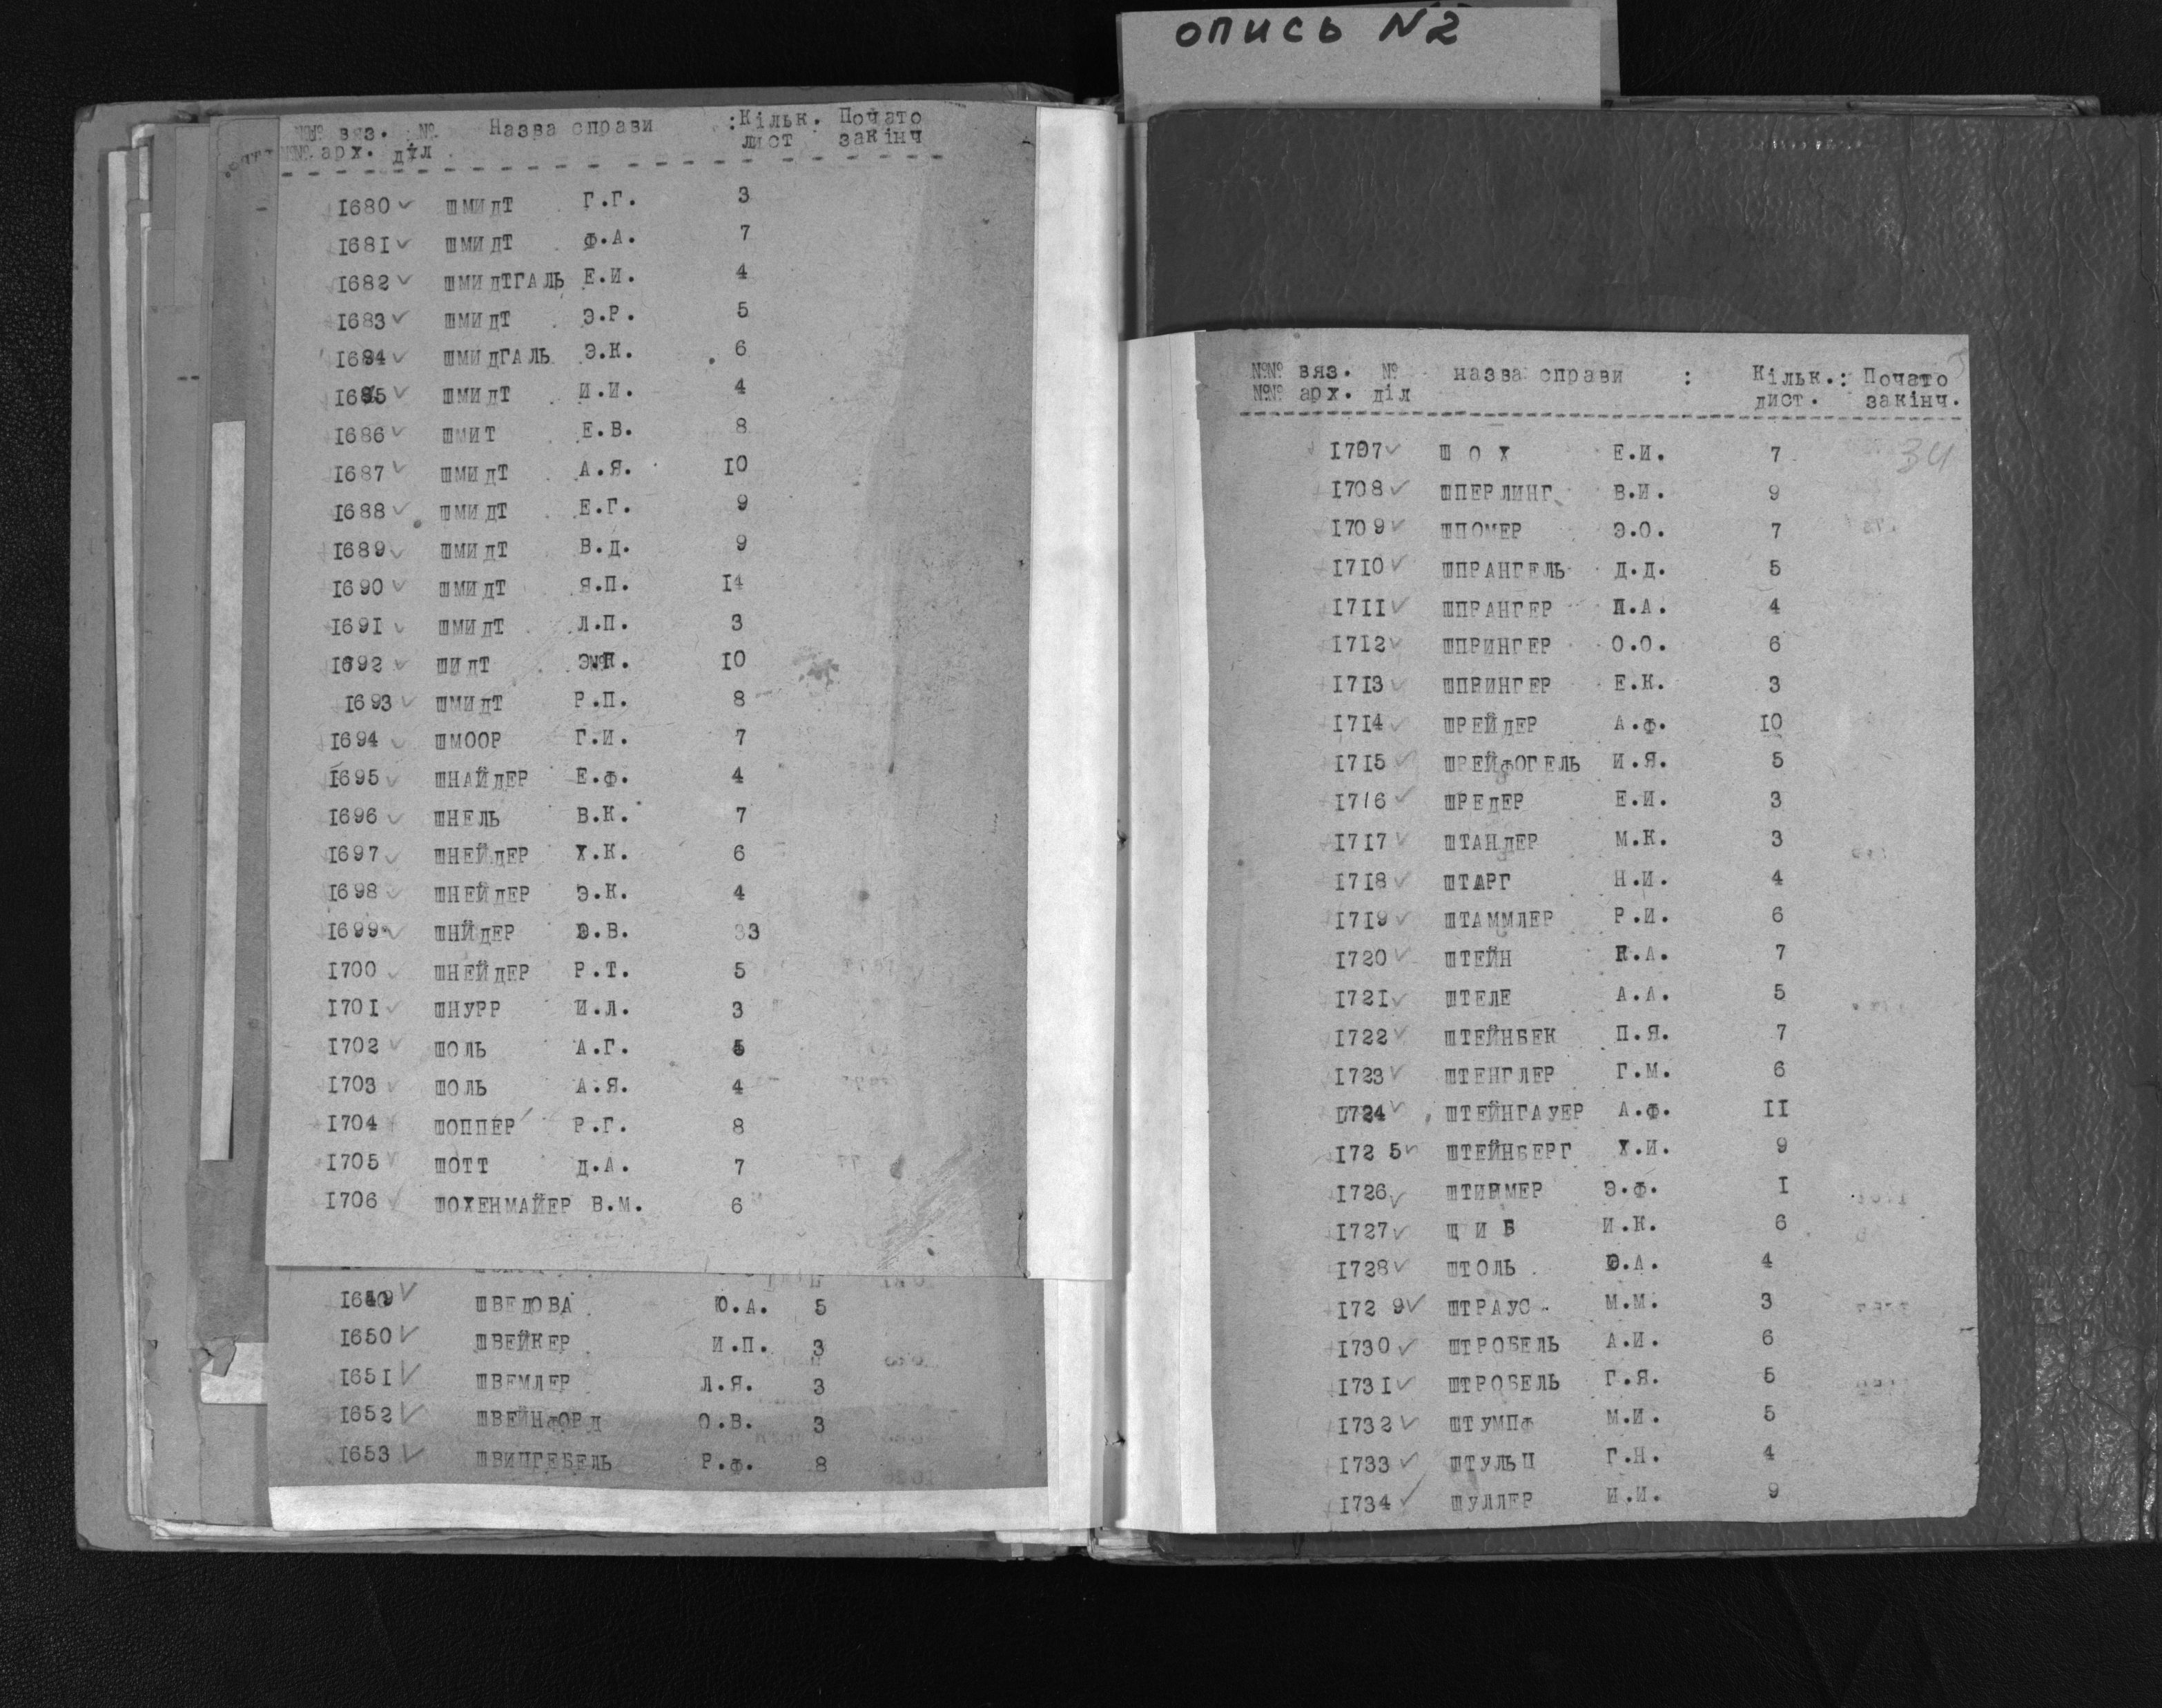 опись №2
№№ вяз. № Назва справи :Кільк. Почато
№№ арх. діл лист закінч
1680 ШМИДТ Г.Г. 3
1681 ШМИДТ Ф.А. 7
1682 ШМИДТГАЛЬ Е.И. 4
1683 ШМИДТ Э.Р. 5
1684 ШМИДГАЛЬ Э.К. 6
1685 ШМИДТ И.И. 4
1686 ШМИТ Е.В. 8
1687 ШМИДТ А.Я. 10
1688 ШМИДТ Е.Г. 9
1689 ШМИДТ В.Д. 9
1690 ШМИДТ Я.П. 14
1691 ШМИДТ Л.П. 3
1692 ШИДТ 10
1693 ШМИДТ Р.П. 8
1694 ШМООР Г.И. 7
1695 ШНАЙДЕР Е.Ф. 4
1696 ШНЕЛЬ В.К. 7
1697 ШНЕЙДЕР Х.К. 6
1698 ШНЕЙДЕР Э.К. 4
1699 ШНЙДЕР Ю.В. 33
1700 ШНЕЙДЕР Р.Т. 5
1701 ШНУРР И.Л. 3
1702 ШОЛЬ А.Г. 5
1703 ШОЛЬ А.Я. 4
1704 ШОППЕР Р.Г. 8
1705 ШОТТ Д.А. 7
1706 ШОХЕНМАЙЕР В.М. 6
1649 ШВЕДОВА Ю.А. 5
1650 ШВЕЙКЕР И.П. 3
1651 ШВЕМЛЕР Л.Я. 3
1652 ШВЕЙНФОРД О.В. 3
1653 ШВИПГЕБЕЛЬ Р.Ф. 8
№№ вяз. № назва справи : Кільк.: Почато
№№ арх. діл лист. закінч.
34
1707 Ш О Х Е.И. 7
1708 ШПЕРЛИНГ В.И. 9
1709 ШПОМЕР Э.О. 7
1710 ШПРАНГЕЛЬ Д.Д. 5
1711 ШПРАНГЕР П.А. 4
1712 ШПРИНГЕР О.О. 6
1713 ШПРИНГЕР Е.К. 3
1714 ШРЕЙДЕР А.Ф. 10
1715 ШРЕЙФОГЕЛЬ И.Я. 5
1716 ШРЕДЕР Е.И. 3
1717 ШТАНДЕР М.К. 3
1718 ШТАРГ Н.И. 4
1719 ШТАММЛЕР Р.И. 6
1720 ШТЕЙН .А. 7
1721 ШТЕЛЕ А.А. 5
1722 ШТЕЙНБЕК П.Я. 7
1723 ШТЕНГЛЕР Г.М. 6
1724 ШТЕЙНГАУЕР А.Ф. 11
1725 ШТЕЙНБЕРГ Х.И. 9
1726 ШТИММЕР Э.Ф. 1
1727 Щ И Б И.К. 6
1728 ШТОЛЬ Ю.А. 4
1729 ШТРАУС М.М. 3
1730 ШТРОБЕЛЬ А.И. 6
1731 ШТРОБЕЛЬ Г.Я. 5
1732 ШТУМПФ М.И. 5
1733 ШТУЛЬЦ Г.Н. 4
1734 ШУЛЛЕР И.И. 9